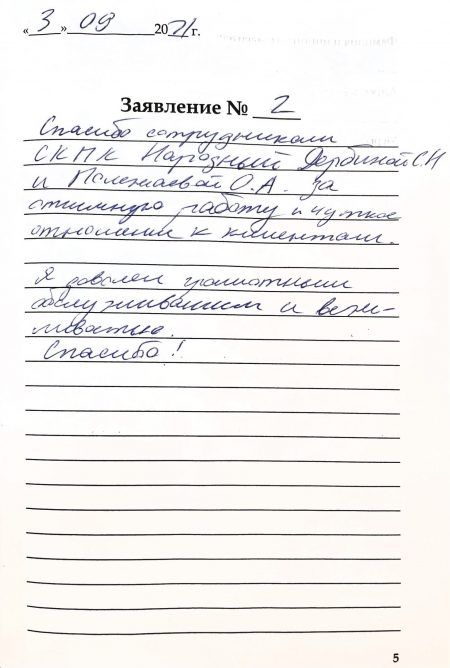 «3» 09 2021 г.
Заявление № 2
Спасибо сотрудникам
СКПК Народный Дербиной С.Н
и Полежаевой О.А. за
отличную работу и чуткое
отношение к клиентам.
Я доволен грамотным
обслуживанием и вежли-
востью.
Спасибо!
5